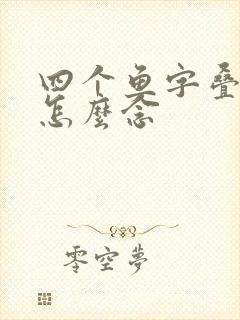 四个鱼字叠
怎麼念
零空夢